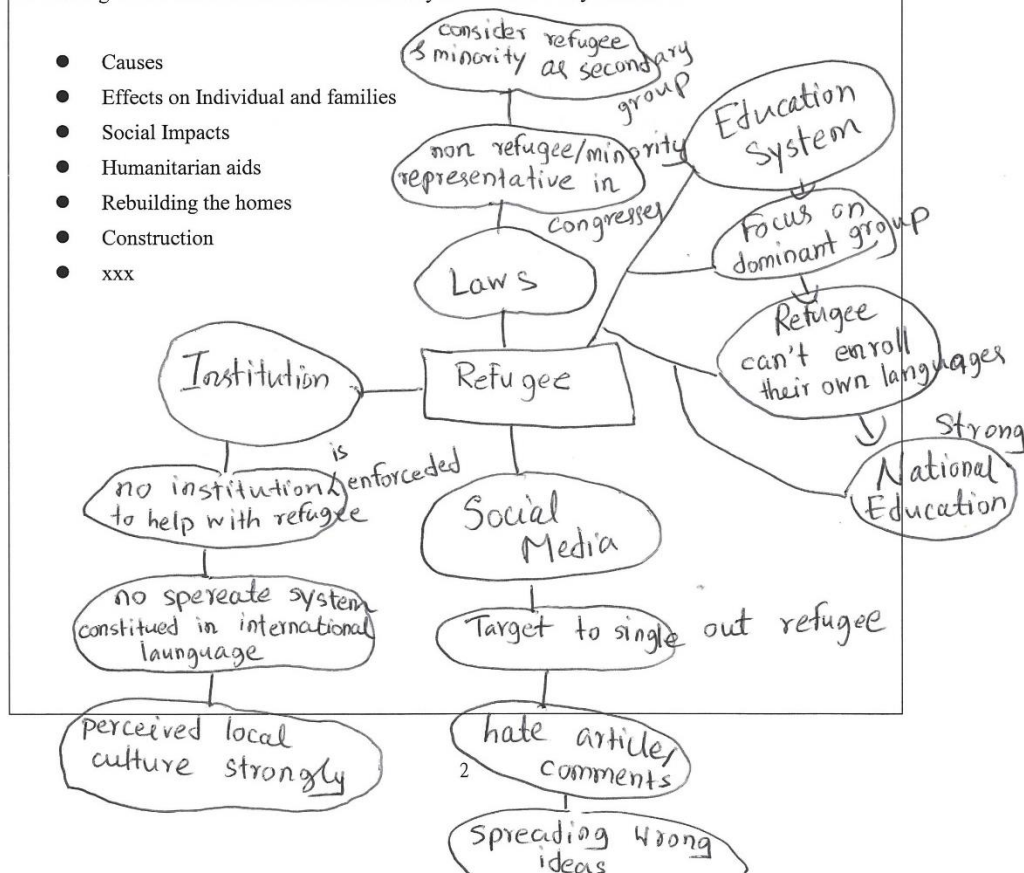 Causes
Effects on Individual and families
Social Impacts
Humanitarian aids
Rebuilding the homes
Construction
xxx
consider refugee
& minority as secondary
group
non refugee/minority
representative in
congresses
Laws
Education
System
Focus on
dominant group
Refugee
can't enroll
their own languages
Strong
National
Education
Refugee
Institution
is
no institution enforceded
to help with refugee
no spereate system
constitued in international
launguage
perceived local
culture strongly
Social
Media
Target to single out refugee
hate article,
comments
spreading wrong
ideas
2